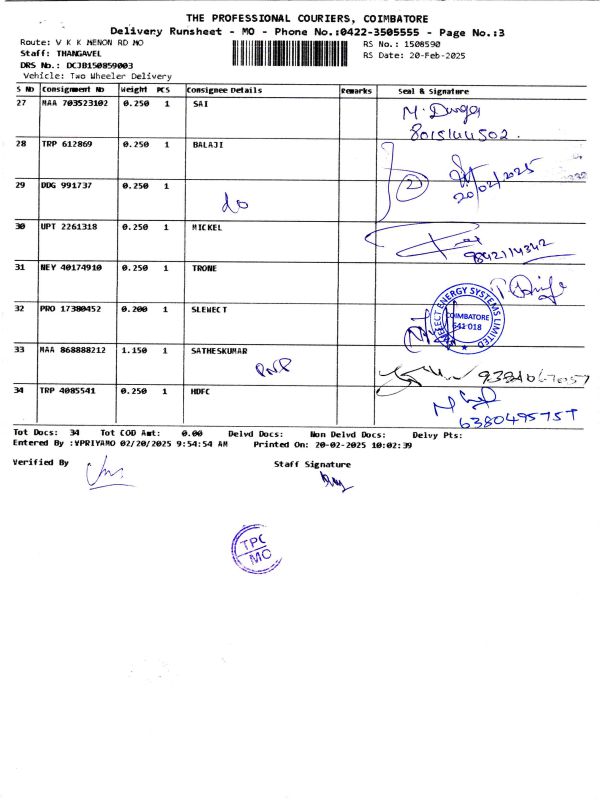 THE PROFESSIONAL COURIERS, COIMBATORE
Delivery Runsheet - MO - Phone No.:0422-3505555 - Page No.:3
Route: V K K MENON RD MO RS No.: 1508590
Staff: THANGAVEL RS Date: 20-Feb-2025
DRS No.: DCJB150859003
Vehicle: Two Wheeler Delivery
S No Consignment No Weight PCS Consignee Details Remarks Seal & Signature
27 MAA 703523102 0.250 1 SAI M. Durga
8015144502.
28 TRP 612869 0.250 1 BALAJI
2 20/02/2025
29 DDG 991737 0.250 1
do
30 UPT 2261318 0.250 1 MICKEL
9842114342
31 NEY 40174910 0.250 1 TRONE
32 PRO 17380452 0.200 1 SLEWECT
ENERGY SYSTEMS LIMITED
COIMBATORE
641 018
33 MAA 868888212 1.150 1 SATHESKUMAR
34 TRP 4085541 0.250 1 HDFC
Tot Docs: 34 Tot COD Amt: 0.00 Delvd Docs: Non Delvd Docs: Delvy Pts:
Entered By :VPRIYAMO 02/20/2025 9:54:54 AM Printed On: 20-02-2025 10:02:39
Verified By Staff Signature
TPC
MO